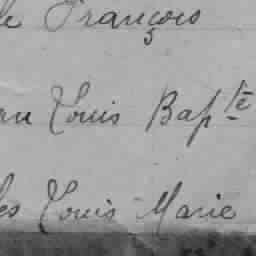 le François
an Louis Bapte
les Louis Marie